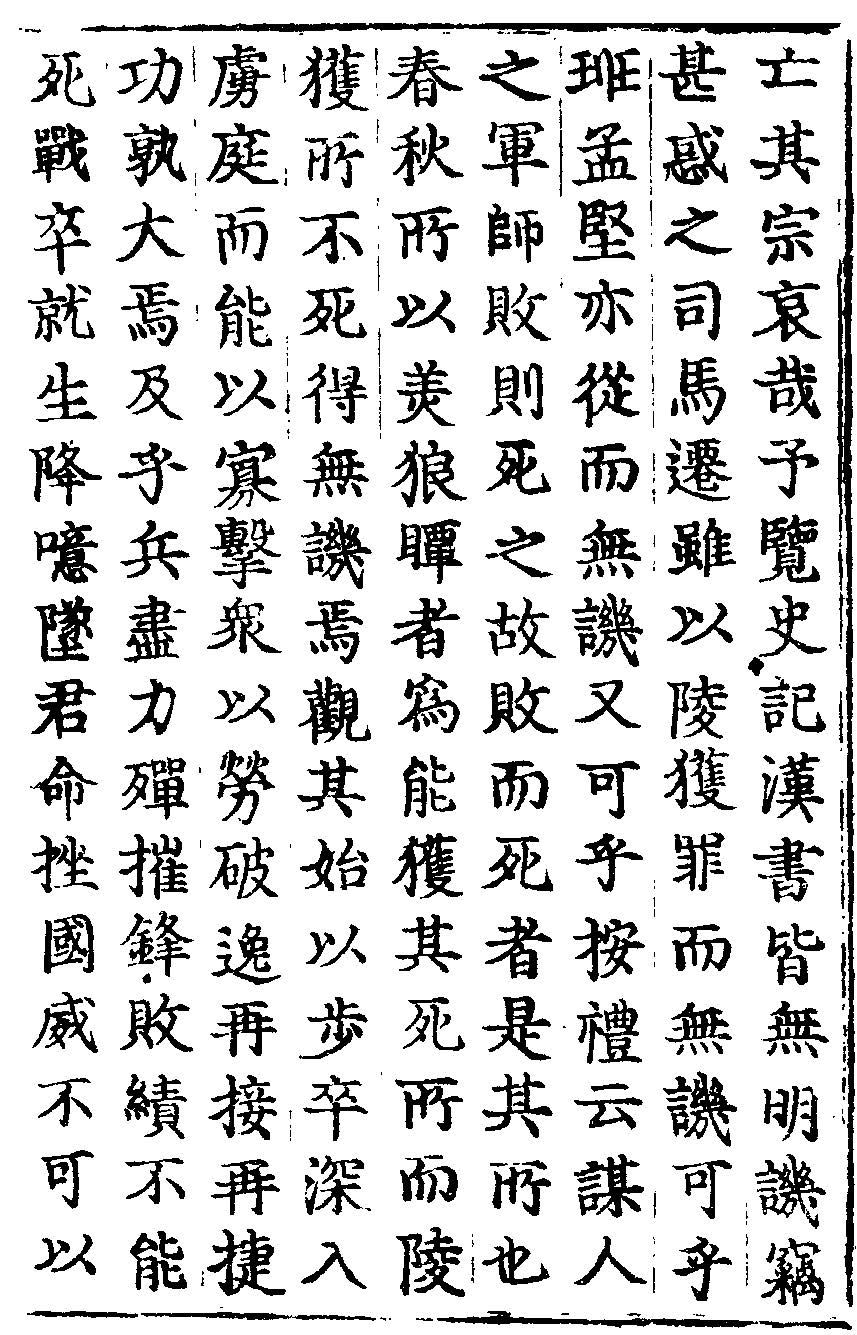 亡其宗哀哉予覽史記漢書皆無明譏竊
甚惑之司馬遷雖以陵獲罪而無譏可乎
班孟堅亦從而無譏又可乎按禮云謀人
之軍師敗則死之故敗而死者是其所也
春秋所以羙狼瞫者爲能獲其死所而陵
獲所不死得無譏焉觀其始以步卒深入
虜庭而能以寡擊衆以勞破逸再接再捷
功孰大焉及乎兵盡力殫摧鋒敗績不能
死戰卒就生降噫墜君命挫國威不可以